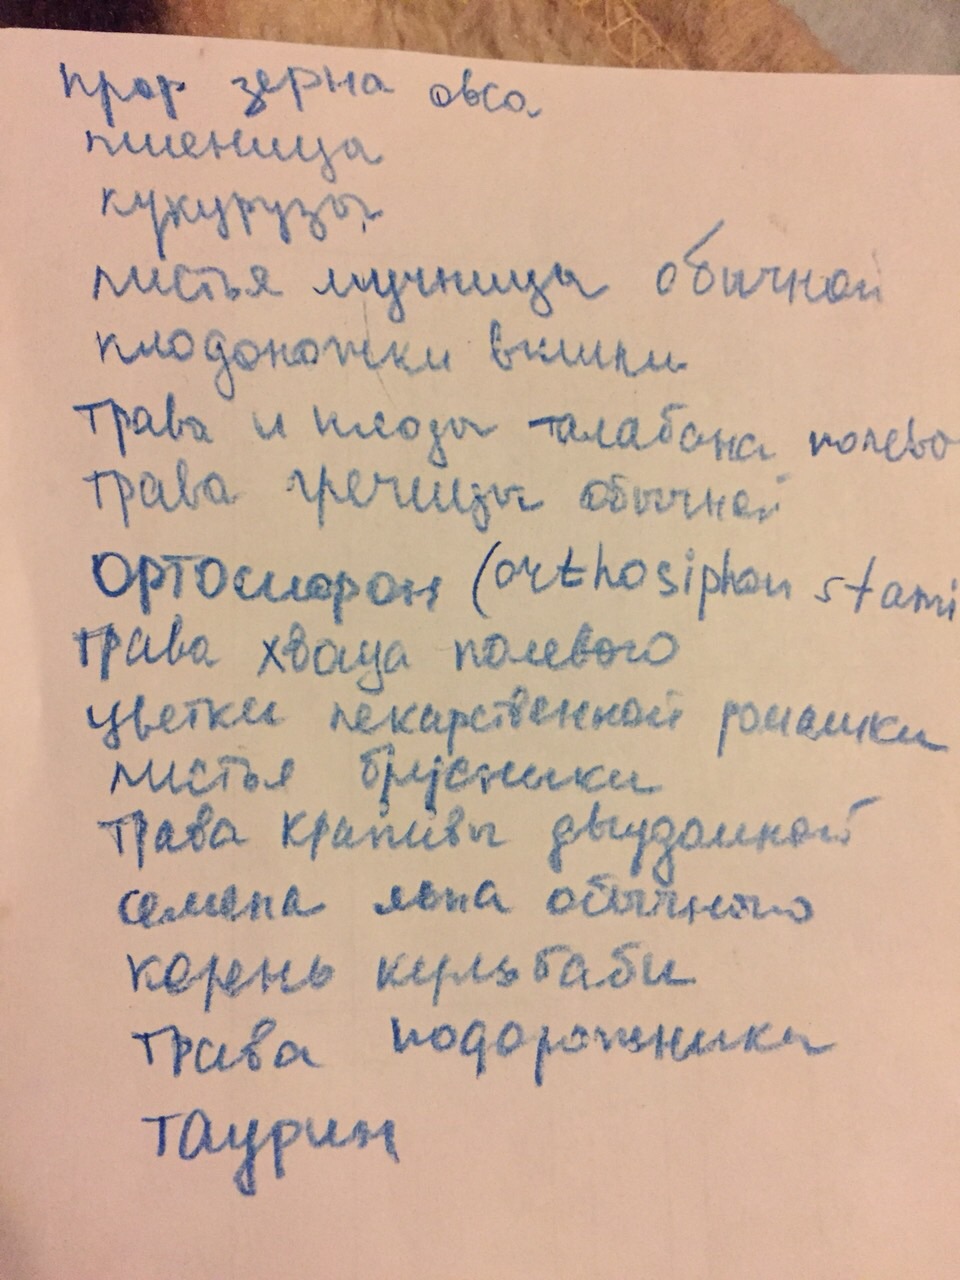 прор зерна овса
пшеница
кукурузы
листья мучницы обычной
плодоножки вишни
трава и плоды талабана полево
трава гречицы обычной
ортосифон (orthosiphon stami
трава хвоща полевого
цветки лекарственной ромашки
листья брусники
трава крапивы двудомной
семена льна обычного
корень кульбабы
трава подорожника
таурин